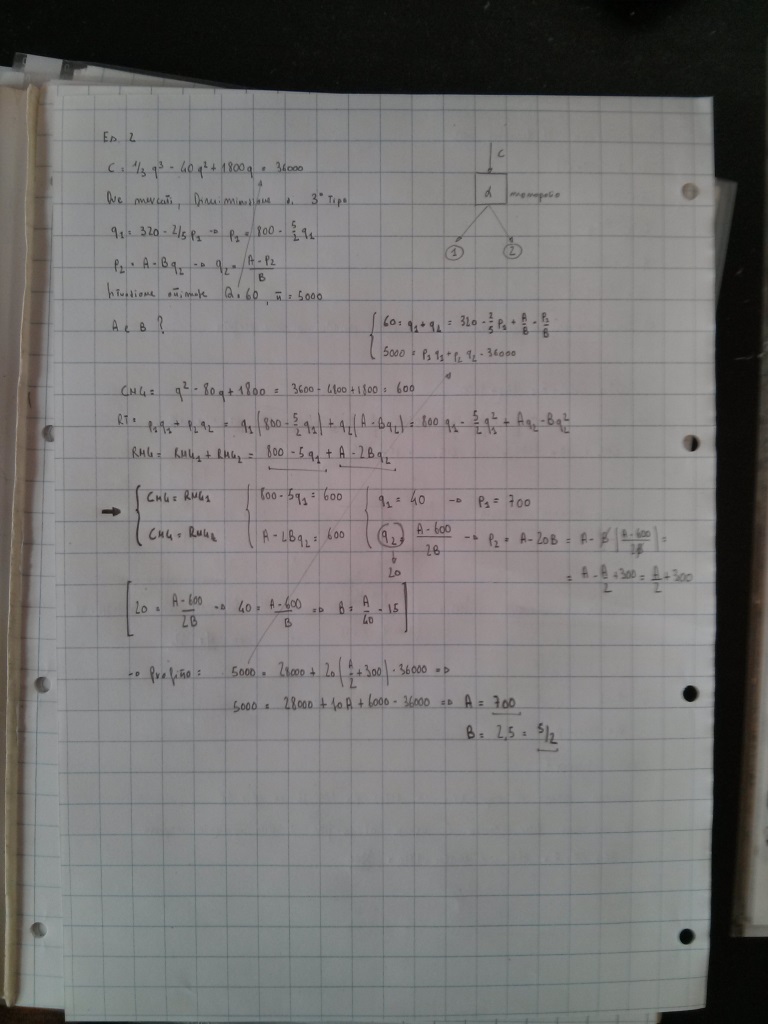 Es. 2
C = 1/3 q³ - 40q² + 1800q = 36000
C
d monopolio
1 2
Due mercati, Discriminazione di 3° Tipo
q1 = 320 - 2/5 P1 → P1 = 800 - 5/2 q1
P2 = A - Bq2 → q2 = A-P2/B
Situazione ottimale Q = 60, π = 5000
A e B ?
60 = q1 + q2 = 320 - 2/5 P1 + A/B - P2/B
5000 = P1 q1 + P2 q2 - 36000
CMG = q² - 80q + 1800 = 3600 - 4800 + 1800 = 600
RT = P1q1 + P2q2 = q1(800 - 5/2 q1) + q2(A - Bq2) = 800q1 - 5/2 q1² + Aq2 - Bq2²
RMG = RMG1 + RMG2 = 800 - 5q1 + A - 2Bq2
CMG = RMG1 800 - 5q1 = 600 q1 = 40 → P1 = 700
CMG = RMG2 A - 2Bq2 = 600 q2 = A-600/2B → P2 = A - 20B = A - B(A-600/2B) =
20
= A - A/2 + 300 = A/2 + 300
[20 = A-600/2B → 40 = A-600/B ⇒ B = A/40 - 15]
→ Profitto: 5000 = 28000 + 20(A/2 + 300) - 36000 ⇒
5000 = 28000 + 10A + 6000 - 36000 ⇒ A = 700
B = 2,5 = 5/2